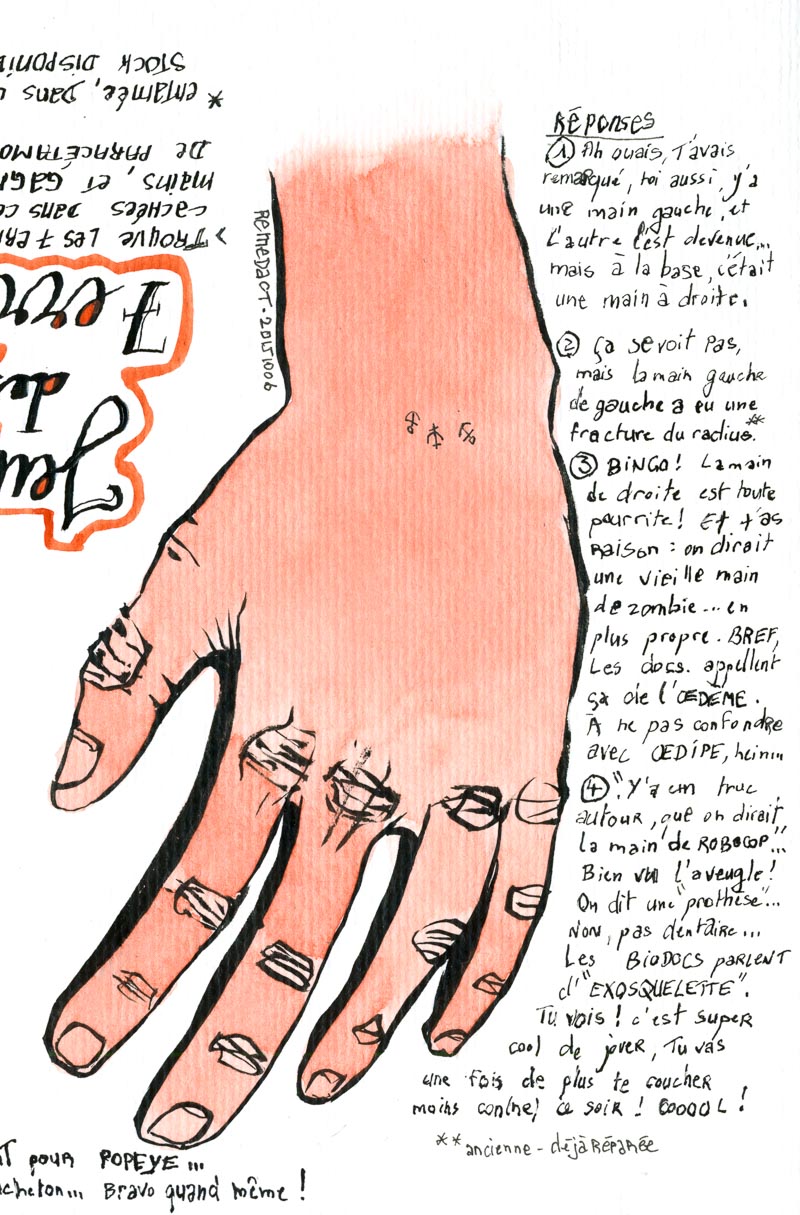 Jeu
des
7 erre
> TROUVE LES 7 ERR
CACHÉES DANS CE
MAINS, ET GAGN
DE PARACÉTAMO
* entamée, DANS U
STOCK DISPONIB
REMEDACT - 20151006
RÉPONSES
① Ah ouais, t'avais
remarqué, toi aussi, y'a
une main gauche, et
l'autre l'est devenue...
mais à la base, c'était
une main à droite.
② ça se voit pas,
mais la main gauche
de gauche a eu une
fracture du radius.**
③ BINGO! La main
de droite est toute
pourrite! Et t'as
RAISON : on dirait
une vieille main
de zombie... en
plus propre. BREF,
Les docs. appellent
ça de l'OEDÈME.
À ne pas confondre
avec OEDIPE, hein...
④ "Y'a un truc
autour, que on dirait
la main de ROBOCOP"...
Bien vu l'aveugle!
On dit une "prothèse"...
Non, pas dentaire...
Les BIODOCS PARLENT
d'"EXOSQUELETTE".
Tu vois! c'est SUPER
cool de jouer, Tu vas
une fois de plus te coucher
moins con(ne) ce soir! COOOOL!
** ancienne - déjà RÉPARÉE
T pour POPEYE...
acheton... Bravo quand même!